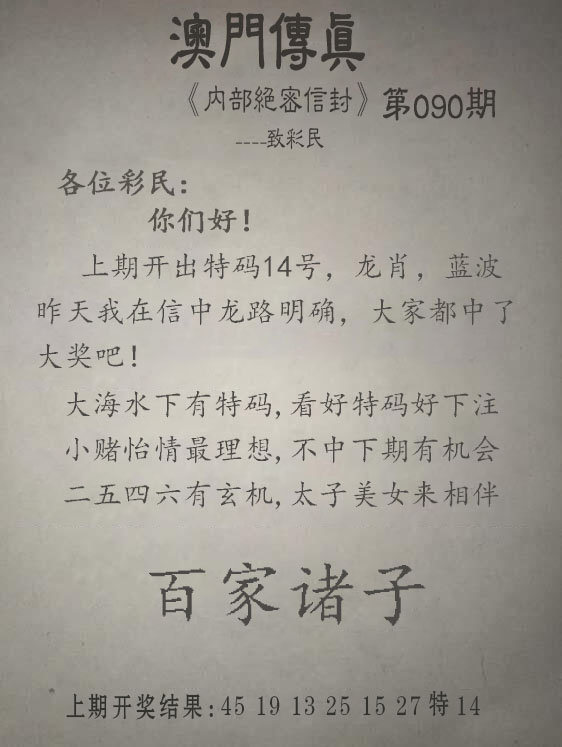 澳門傳眞
《内部絕密信封》第090期
----致彩民
各位彩民:
你们好!
上期开出特码14号，龙肖，蓝波
昨天我在信中龙路明确，大家都中了
大奖吧!
大海水下有特码,看好特码好下注
小赌怡情最理想,不中下期有机会
二五四六有玄机,太子美女来相伴
百家诸子
上期开奖结果:45 19 13 25 15 27 特 14